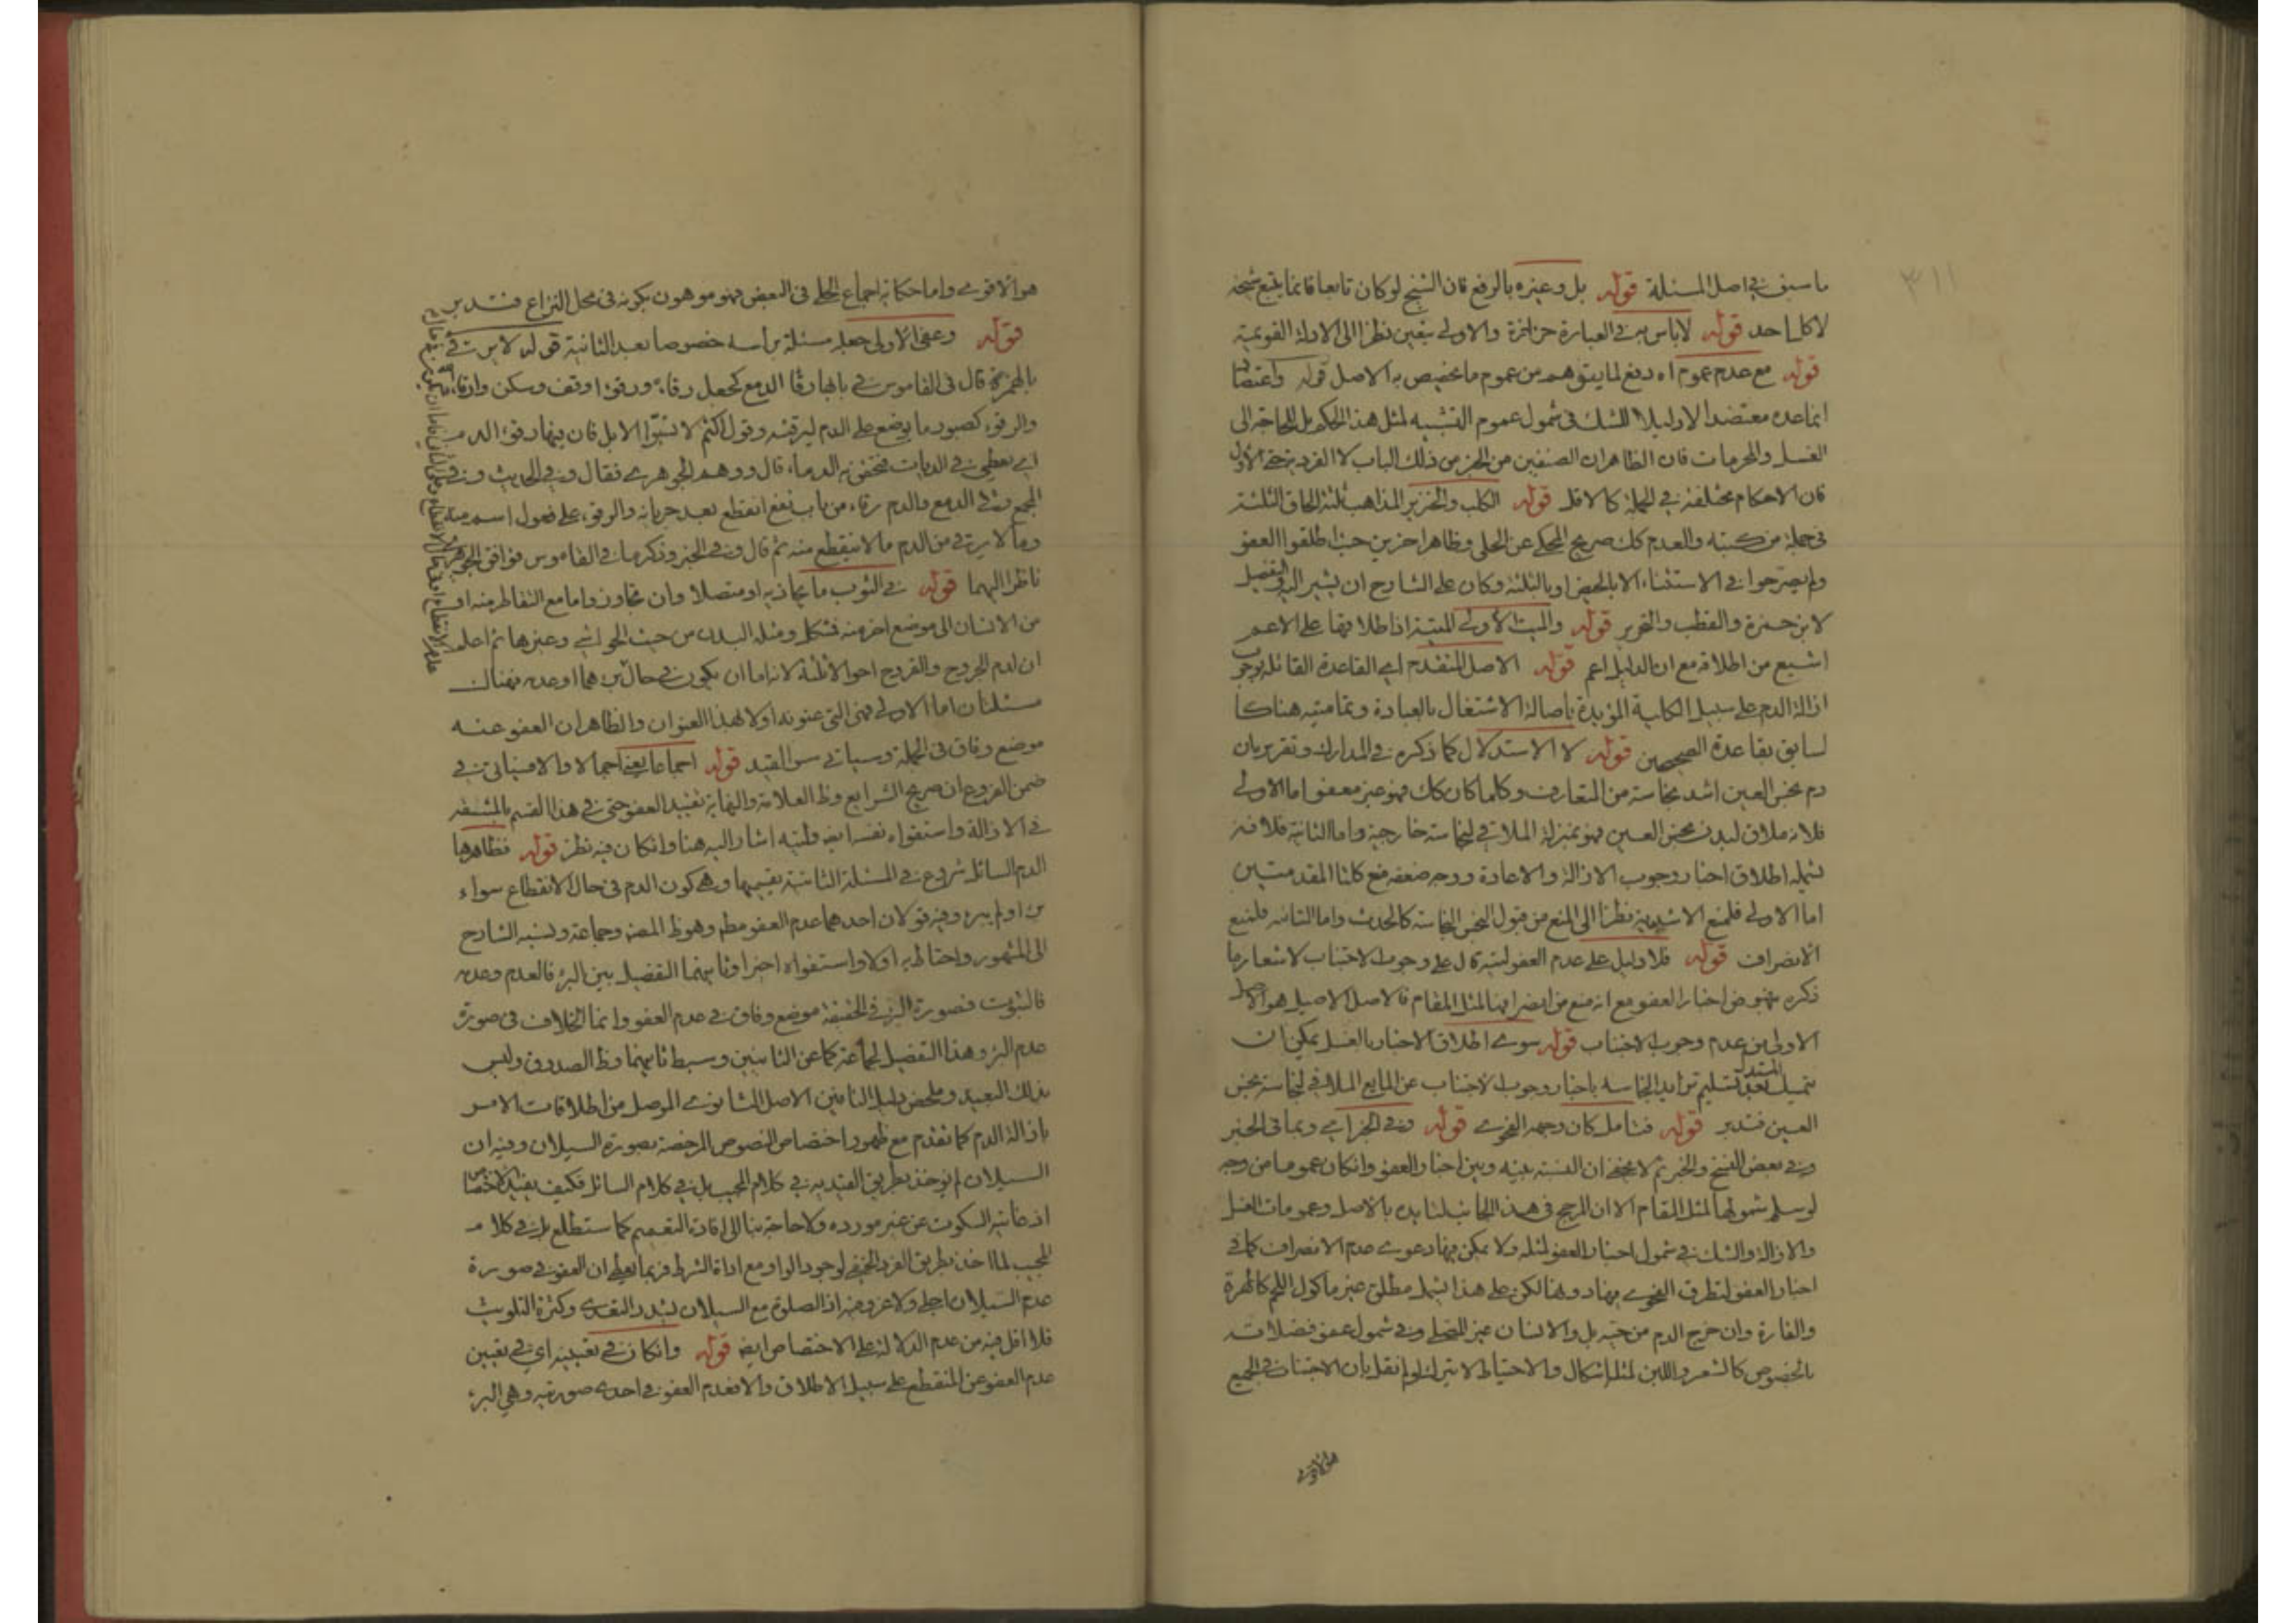 ٣١١
ما سبق في اصل المسئلة قوله بل وغيره بالرفع فان الشيخ لو كان تابعا فانما يتبع شيخه
لا كل احد قوله لا باس به في العبارة حزازة والاولى يتعين نظرا الى الادلة القويمة
قوله مع عدم عموم اه دفع لما يتوهم من عموم ما يختص به الاصل قوله واعتضا
انما عده معتضدا لا دليلا للشك في شمول عموم التشبيه لمثل هذا الحكم بل للحاجة الى
الغسل والمحرمات فان الظاهر ان الصنفين من الحيز من ذلك الباب لا الفرد
فان الاحكام مختلفة في الجملة كالاقل قوله الكلب والخنزير المذاهب ثلثة الحاق الثلثة
في جملة من كتبه والعدم كك صريح المحكي عن الحلي وظاهر اخرين حيث اطلقوا العفو
ولم يصرحوا في الاستثناء الا بالحيض او بالثلثة وكان على الشارح ان يشير اليه والتفصيل
لابن حمزة والقطب والتحرير قوله والميت الاولى الميتة اذ اطلاقها على الاعم
اشيع من اطلاقه مع ان الدليل اعم قوله الاصل المتقدم اي القاعدة القائلة بوجوب
ازالة الدم على سبيل الكلية المؤيدة باصالة الاشتغال بالعبادة وتماميته هناك
لسابق بقاعدة الصحيحين قوله لا الاستدلال كما ذكره في المدارك وتقريره ان
دم نجس العين اشد نجاسة من المتعارف وكلما كان كك فهو غير معفو اما الاولى
فلانه ملاق لبدن نجس العين فهو بمنزلة الملاقي لنجاسة خارجية واما الثانية فلانه
يشمله اطلاق اخبار وجوب الازالة والاعادة ووجه ضعفه منع كلتا المقدمتين
اما الاولى فلمنع الاشدية نظرا الى المنع من قبول النجس النجاسة كالحدث واما الثانية فلمنع
الانصراف قوله فلا دليل على عدم العفو ليته قال على وجوب الاجتناب لاشعار ما
ذكره بنهوض اخبار العفو مع انه منع من انصرافها لمثل المقام فالاصل الاصيل هو الاصل
الاولى من عدم وجوب الاجتناب قوله سوى اطلاق الاخبار بالغسل يمكن ان
يتمسك بعد تسليم تزايد النجاسة باخبار وجوب الاجتناب عن المايع الملاقي لنجاسة نجس
العين فتدبر قوله فتامل كان وجهه الفحوى قوله وفي الخبر اي وبما في الخبر
وفي بعض النسخ والخبر ثم لا يخفى ان النسبة بينه وبين اخبار العفو وان كان عموما من وجه
لو سلم شمولها لمثل المقام الا ان المرجح في هذا الجانب لتايده بالاصل وعمومات الغسل
والازالة والشك في شمول اخبار العفو لمثله ولا يمكن فيها دعوى عدم الانصراف كما في
اخبار العفو لتطرق الفحوى فيها دونها لكن على هذا يشمل مطلق غير ماكول اللحم كالهرة
والفارة وان خرج الدم من جنبه بل والانسان غير المصلي وفي شموله عفو فضلاته
بالخصوص كالشعر واللبن لمثله اشكال والاحتياط لا يترك لو لم نقل بان الاجتناب في الجميع
هو الاقوى
هو الاقوى واما حكاية اجماع الحلي في البعض فهو موهون بكونه في محل النزاع فتدبر
قوله وعفى الاولى جعله مسئلة براسه خصوصا بعد الثانية قوله لا يرقى
بالهمزة قال في القاموس في بابها رقا الدمع كجعل رقاء ورقوءا وقف وسكن وارقاه
والرقوء كصبور ما يوضع على الدم ليرقئه وقول اكثم لا تسبوا الابل فان فيها رقوء الدم
اي تعطى في الديات فتحقن به الدماء قال ووهم الجوهري فقال وفي الحديث وفي
المجمع رقا الدمع والدم رقاء من باب نفع انقطع بعد جريانه والرقوء على فعول اسم منه
وما لا يرقى من الدم ما لا ينقطع منه ثم قال وفي الخبر وذكر ما في القاموس فوافق الجوهري
ناظرا اليهما قوله في الثوب ما يحاذيه او متصلا وان تجاوز واما مع التقاطر منه او
من الانسان الى موضع اخر منه فشكل ومثله البدن من حيث الحواشي وغيرها ثم اعلم
ان لدم الجروح والقروح احوالا ثلثة لانه اما ان يكون في حال برءهما او عدمه فهنالك
مسئلتان اما الاولى فهي التي عنونه اولا بهذا العنوان والظاهر ان العفو عنه
موضع وفاق في الجملة وسياتي سر القيد قوله اجماعا يعني اجمالا والا فسياتي في
ضمن الفروع ان صريح الشرايع وظ العلامة والنهاية تقييد العفو حتى في هذا القسم بالمشقة
في الازالة واستقواه نفسه ايضا وليته اشار اليه هنا وان كان فيه نظر قوله فظاهرها
الدم السائل شروع في المسئلة الثانية بقسميها وهي كون الدم في حال الانقطاع سواء
برء او لم يبرء وفيه قولان احدهما عدم العفو مطم وهو ظ المصنف وجماعة ونسبه الشارح
الى المشهور واحتاط به اولا واستقواه اخيرا وثانيهما التفصيل بين البرء فالعدم وعدمه
فالثبوت فصورة البرء في الحقيقة موضع وفاق في عدم العفو وانما الخلاف في صورة
عدم البرء وهذا التفصيل لجماعة كما عن الثانيين وسبط ثانيهما وظ الصدوق وليس
بذلك البعيد وملخص دليل النافين الاصل الثانوي الموصل من اطلاقات الامر
بازالة الدم كما تقدم مع ظهور اختصاص النصوص المرخصة بصورة السيلان وفيه ان
السيلان لم يوخذ بطريق القيدية في كلام المجيب بل في كلام السائل فكيف يفيد الاختصاص
اذ غايته السكوت عن غير مورده ولا حاجة بنا الى افادته التعميم كما ستطلع بل في كلام
المجيب لما اخذ بطريق الفرد الخفي لوجود الواو مع اداة الشرط فربما يعطي ان العفو في صورة
عدم السيلان اجلى ولا غرو فيه اذ الصلوة مع السيلان لشدة التعدي وكثرة التلويث
فلا اقل فيه من عدم الدلالة على الاختصاص ايضا قوله وان كان في تعيينه اي في تعيين
عدم العفو عن المنقطع على سبيل الاطلاق والا فعدم العفو في احدى صورتيه وهي البرء